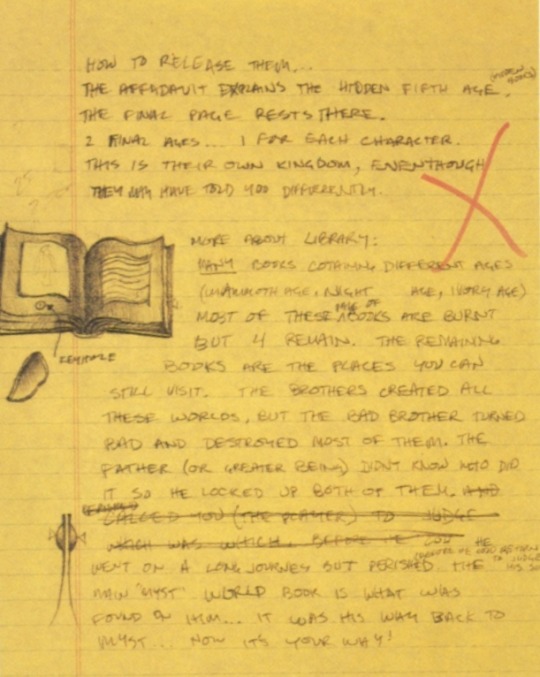 HOW TO RELEASE THEM...
THE AFFADAVIT EXPLAINS THE HIDDEN FIFTH AGE.
THE FINAL PAGE RESTS THERE.
2 FINAL AGES... 1 FOR EACH CHARACTER.
THIS IS THEIR OWN KINGDOM, EVENTHOUGH
THEY MAY HAVE TOLD YOU DIFFERENTLY.
MORE ABOUT LIBRARY:
MANY BOOKS COTAINING DIFFERENT AGES
AGE, IVORY AGE)
PAGE OF
MOST OF THESE BOOKS ARE BURNT
BUT 4 REMAIN. THE REMAINING
BOOKS ARE THE PLACES YOU CAN
STILL VISIT. THE BROTHERS CREATED ALL
THESE WORLDS, BUT THE BAD BROTHER TURNED
BAD AND DESTROYED MOST OF THEM. THE
FATHER (OR GREATER BEING) DIDN'T KNOW WHO DID
IT SO HE LOCKED UP BOTH OF THEM. AND
CALLED YOU (THE PLAYER) TO JUDGE
WHICH WAS WHICH. BEFORE HE HE
WENT ON A LONG JOURNEY BUT PERISHED. THE
MAIN "MYST" WORLD BOOK IS WHAT WAS
FOUND ON HIM... IT WAS HIS WAY BACK TO
MYST... NOW IT'S YOUR WAY!